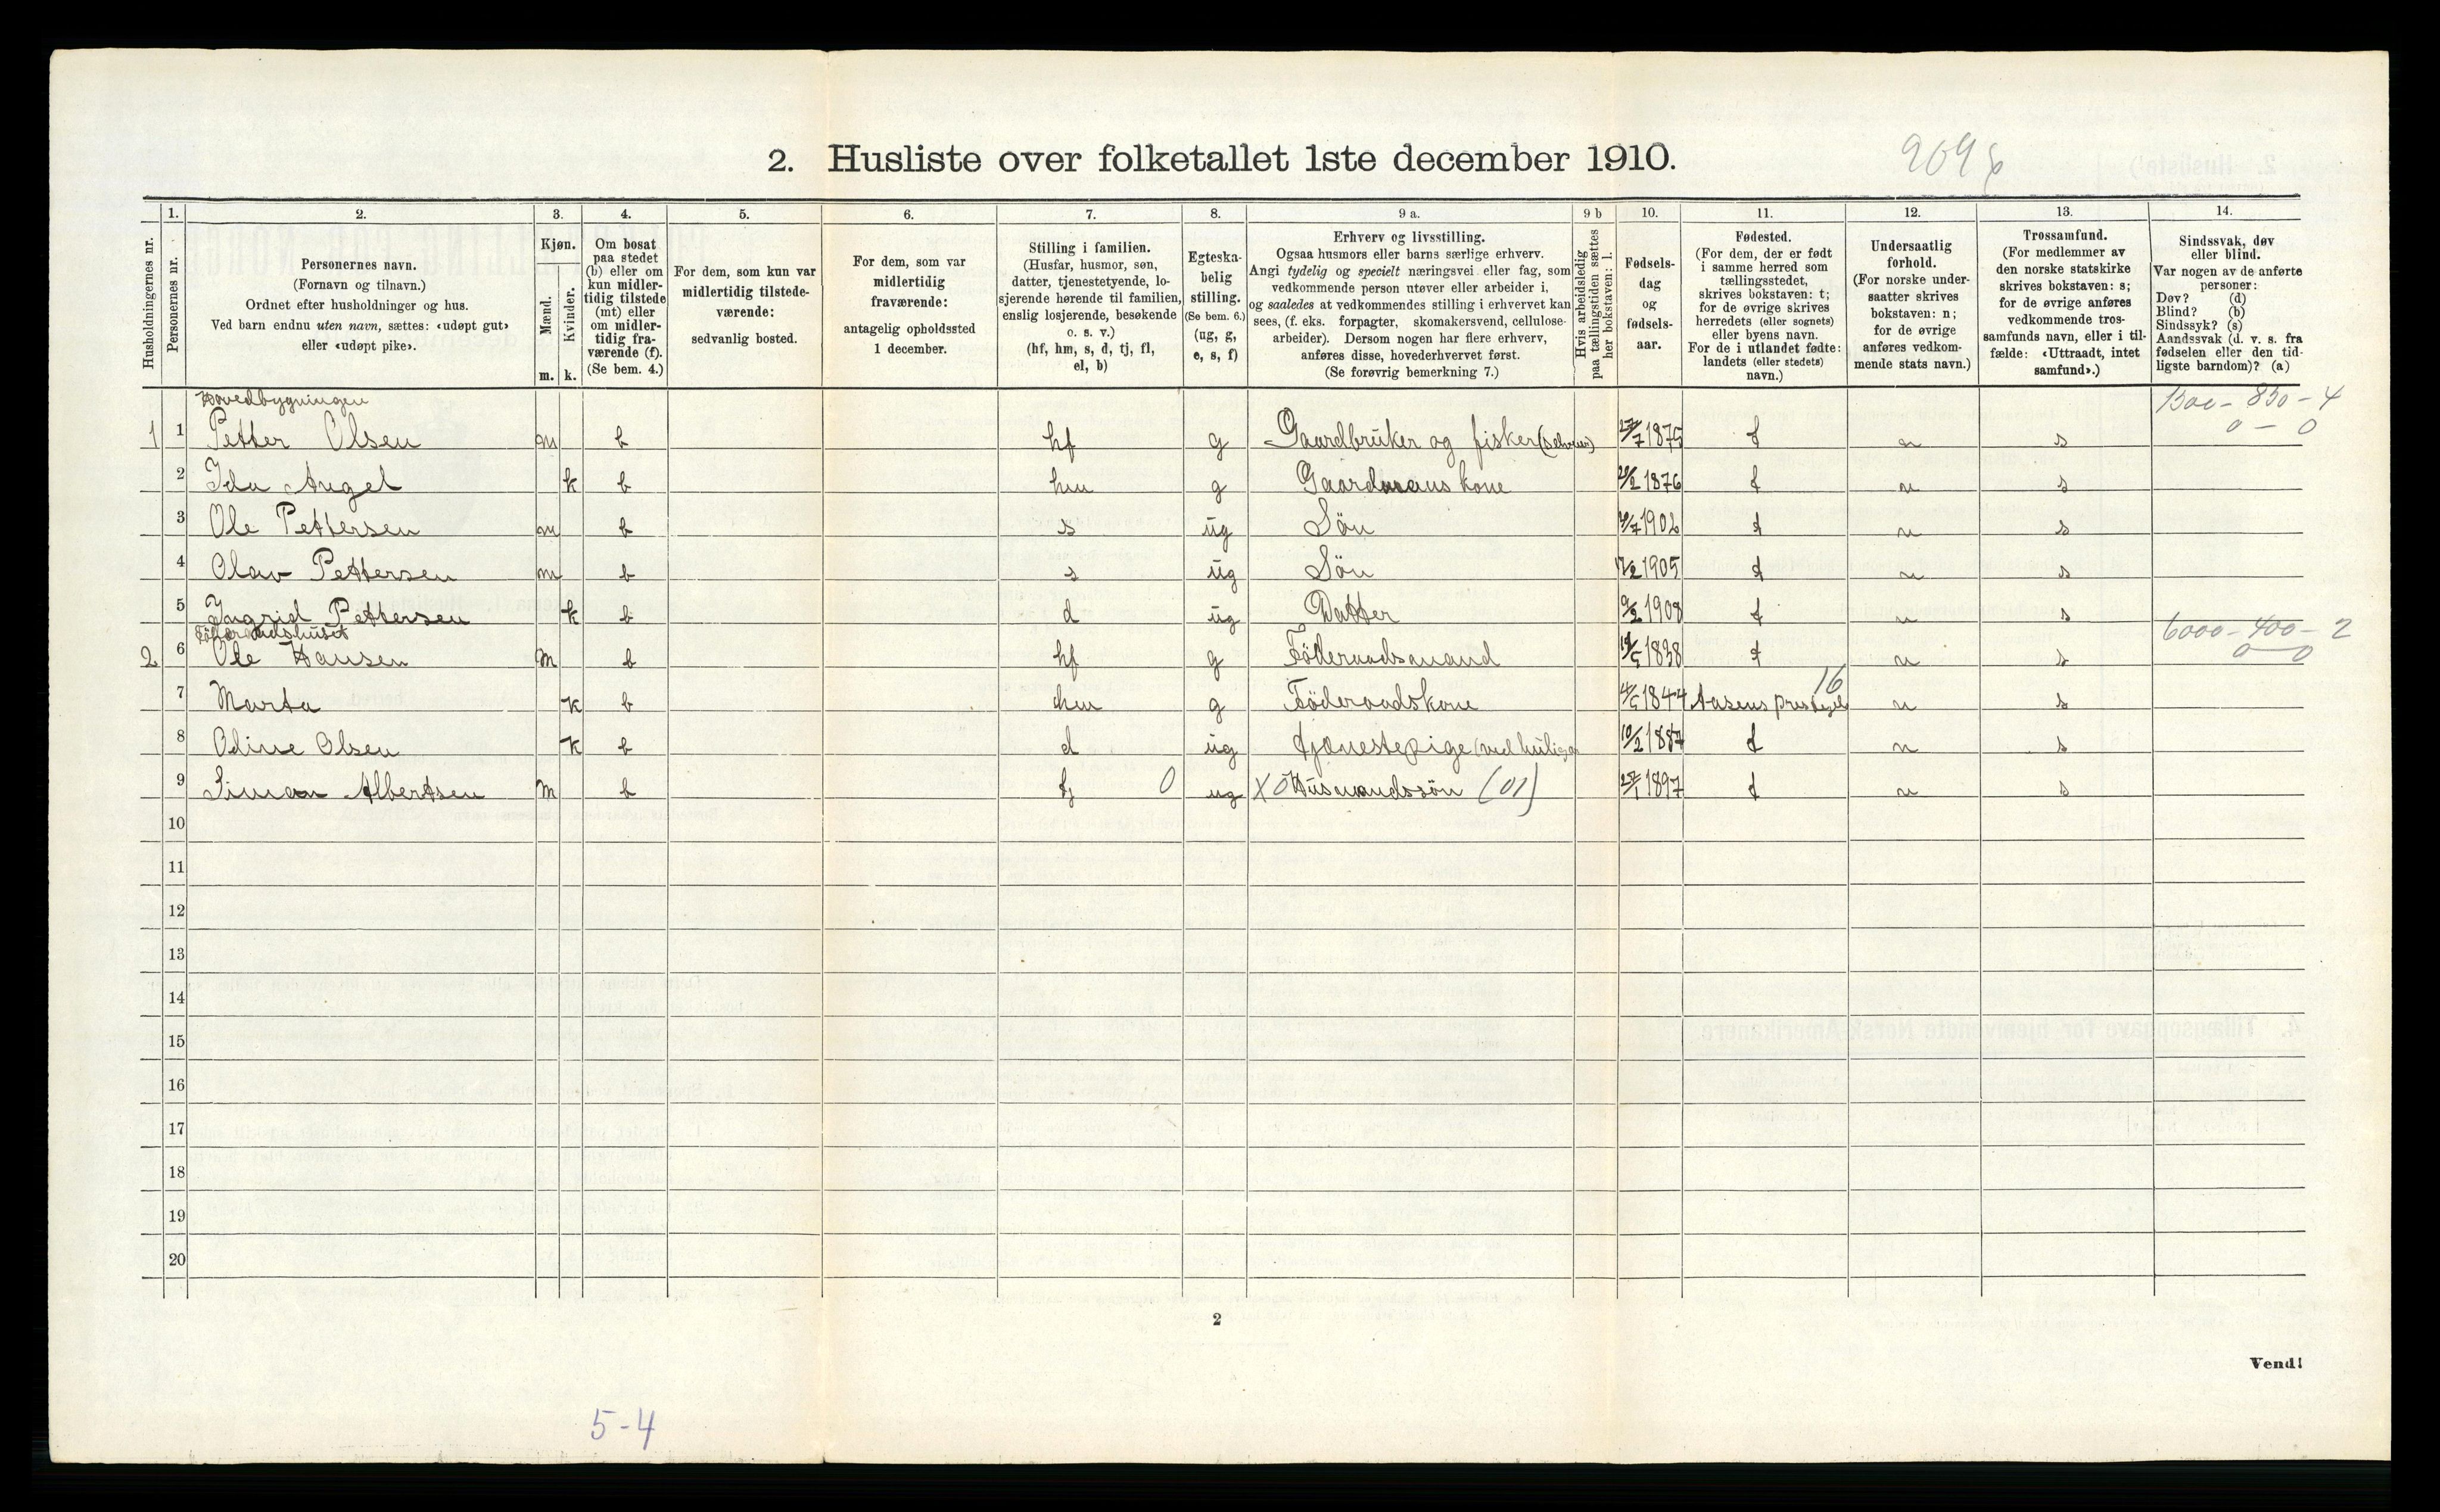 2. Husliste over folketallet 1ste december 1910.
Husholdningernes nr.
1.
Personernes nr.
2.
Personernes navn.
(Fornavn og tilnavn.)
Ordnet efter husholdninger og hus.
Ved barn endnu uten navn, sættes: «udøpt gut»
eller «udøpt pike».
3.
Kjøn.
Mænd.
Kvinder.
m. k.
4.
Om bosat
paa stedet
(b) eller om
kun midler-
tidig tilstede
(mt) eller
om midler-
tidig fra-
værende (f).
(Se bem. 4.)
5.
For dem, som kun var
midlertidig tilstede-
værende:
sedvanlig bosted.
6.
For dem, som var
midlertidig
fraværende:
antagelig opholdssted
1 december.
7.
Stilling i familien.
(Husfar, husmor, søn,
datter, tjenestetyende, lo-
sjerende hørende til familien,
enslig losjerende, besøkende
o. s. v.)
(hf, hm, s, d, tj, fl,
el, b)
8.
Egteska-
belig
stilling.
(Se bem. 6.)
(ug, g,
e, s, f)
9 a.
Erhverv og livsstilling.
Ogsaa husmors eller barns særlige erhverv.
Angi tydelig og specielt næringsvei eller fag, som
vedkommende person utøver eller arbeider i,
og saaledes at vedkommendes stilling i erhvervet kan
sees, (f. eks. forpagter, skomakersvend, cellulose-
arbeider). Dersom nogen har flere erhverv,
anføres disse, hovederhvervet først.
(Se forøvrig bemerkning 7.)
9 b
Hvis arbeidsledig
paa tællingstiden sættes
her bokstaven: l.
10.
Fødsels-
dag
og
fødsels-
aar.
11.
Fødested.
(For dem, der er født
i samme herred som
tællingsstedet,
skrives bokstaven: t;
for de øvrige skrives
herredets (eller sognets)
eller byens navn.
For de i utlandet fødte:
landets (eller stedets)
navn.)
12.
Undersaatlig
forhold.
(For norske under-
saatter skrives
bokstaven: n;
for de øvrige
anføres vedkom-
mende stats navn.)
13.
Trossamfund.
(For medlemmer av
den norske statskirke
skrives bokstaven: s;
for de øvrige anføres
vedkommende tros-
samfunds navn, eller i til-
fælde: «Uttraadt, intet
samfund».)
14.
Sindssvak, døv
eller blind.
Var nogen av de anførte
personer:
Døv? (d)
Blind? (b)
Sindssyk? (s)
Aandssvak (d. v. s. fra
fødselen eller den tid-
ligste barndom)? (a)
Hovedbygningen
1 1 Petter Olsen m b hf g Gaardbruker og fisker 27/7 1875 t n s
0 - 0
2 Ida Angel k b hm g Gaardmans kone 1876 t n s
3 Ole Pettersen m b s ug Sön 1902 t n s
4 Olav Pettersen m b s ug Sön 17/2 1905 t n s
5 Ingrid Pettersen k b d ug Datter 9/2 1908 t n s
Föderaadshuset
6000 - 400 - 2
0 0
2 6 Ole Hansen m b hf g Föderaadsmand 1838 t n s
16
7 Marta k b hm g Föderaadskone 1844 Aasens prestegjeld n s
8 Odine Olsen k b d ug tjænestepige 10/2 1887 t n s
9 Simon Albertsen m b tj 0 ug X 0 Husmandssön (01) 1897 t n s
10
11
12
13
14
15
16
17
18
19
20
2
Vend!
5-4